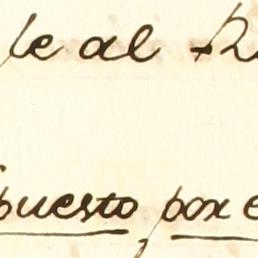 le al R
puesto por e